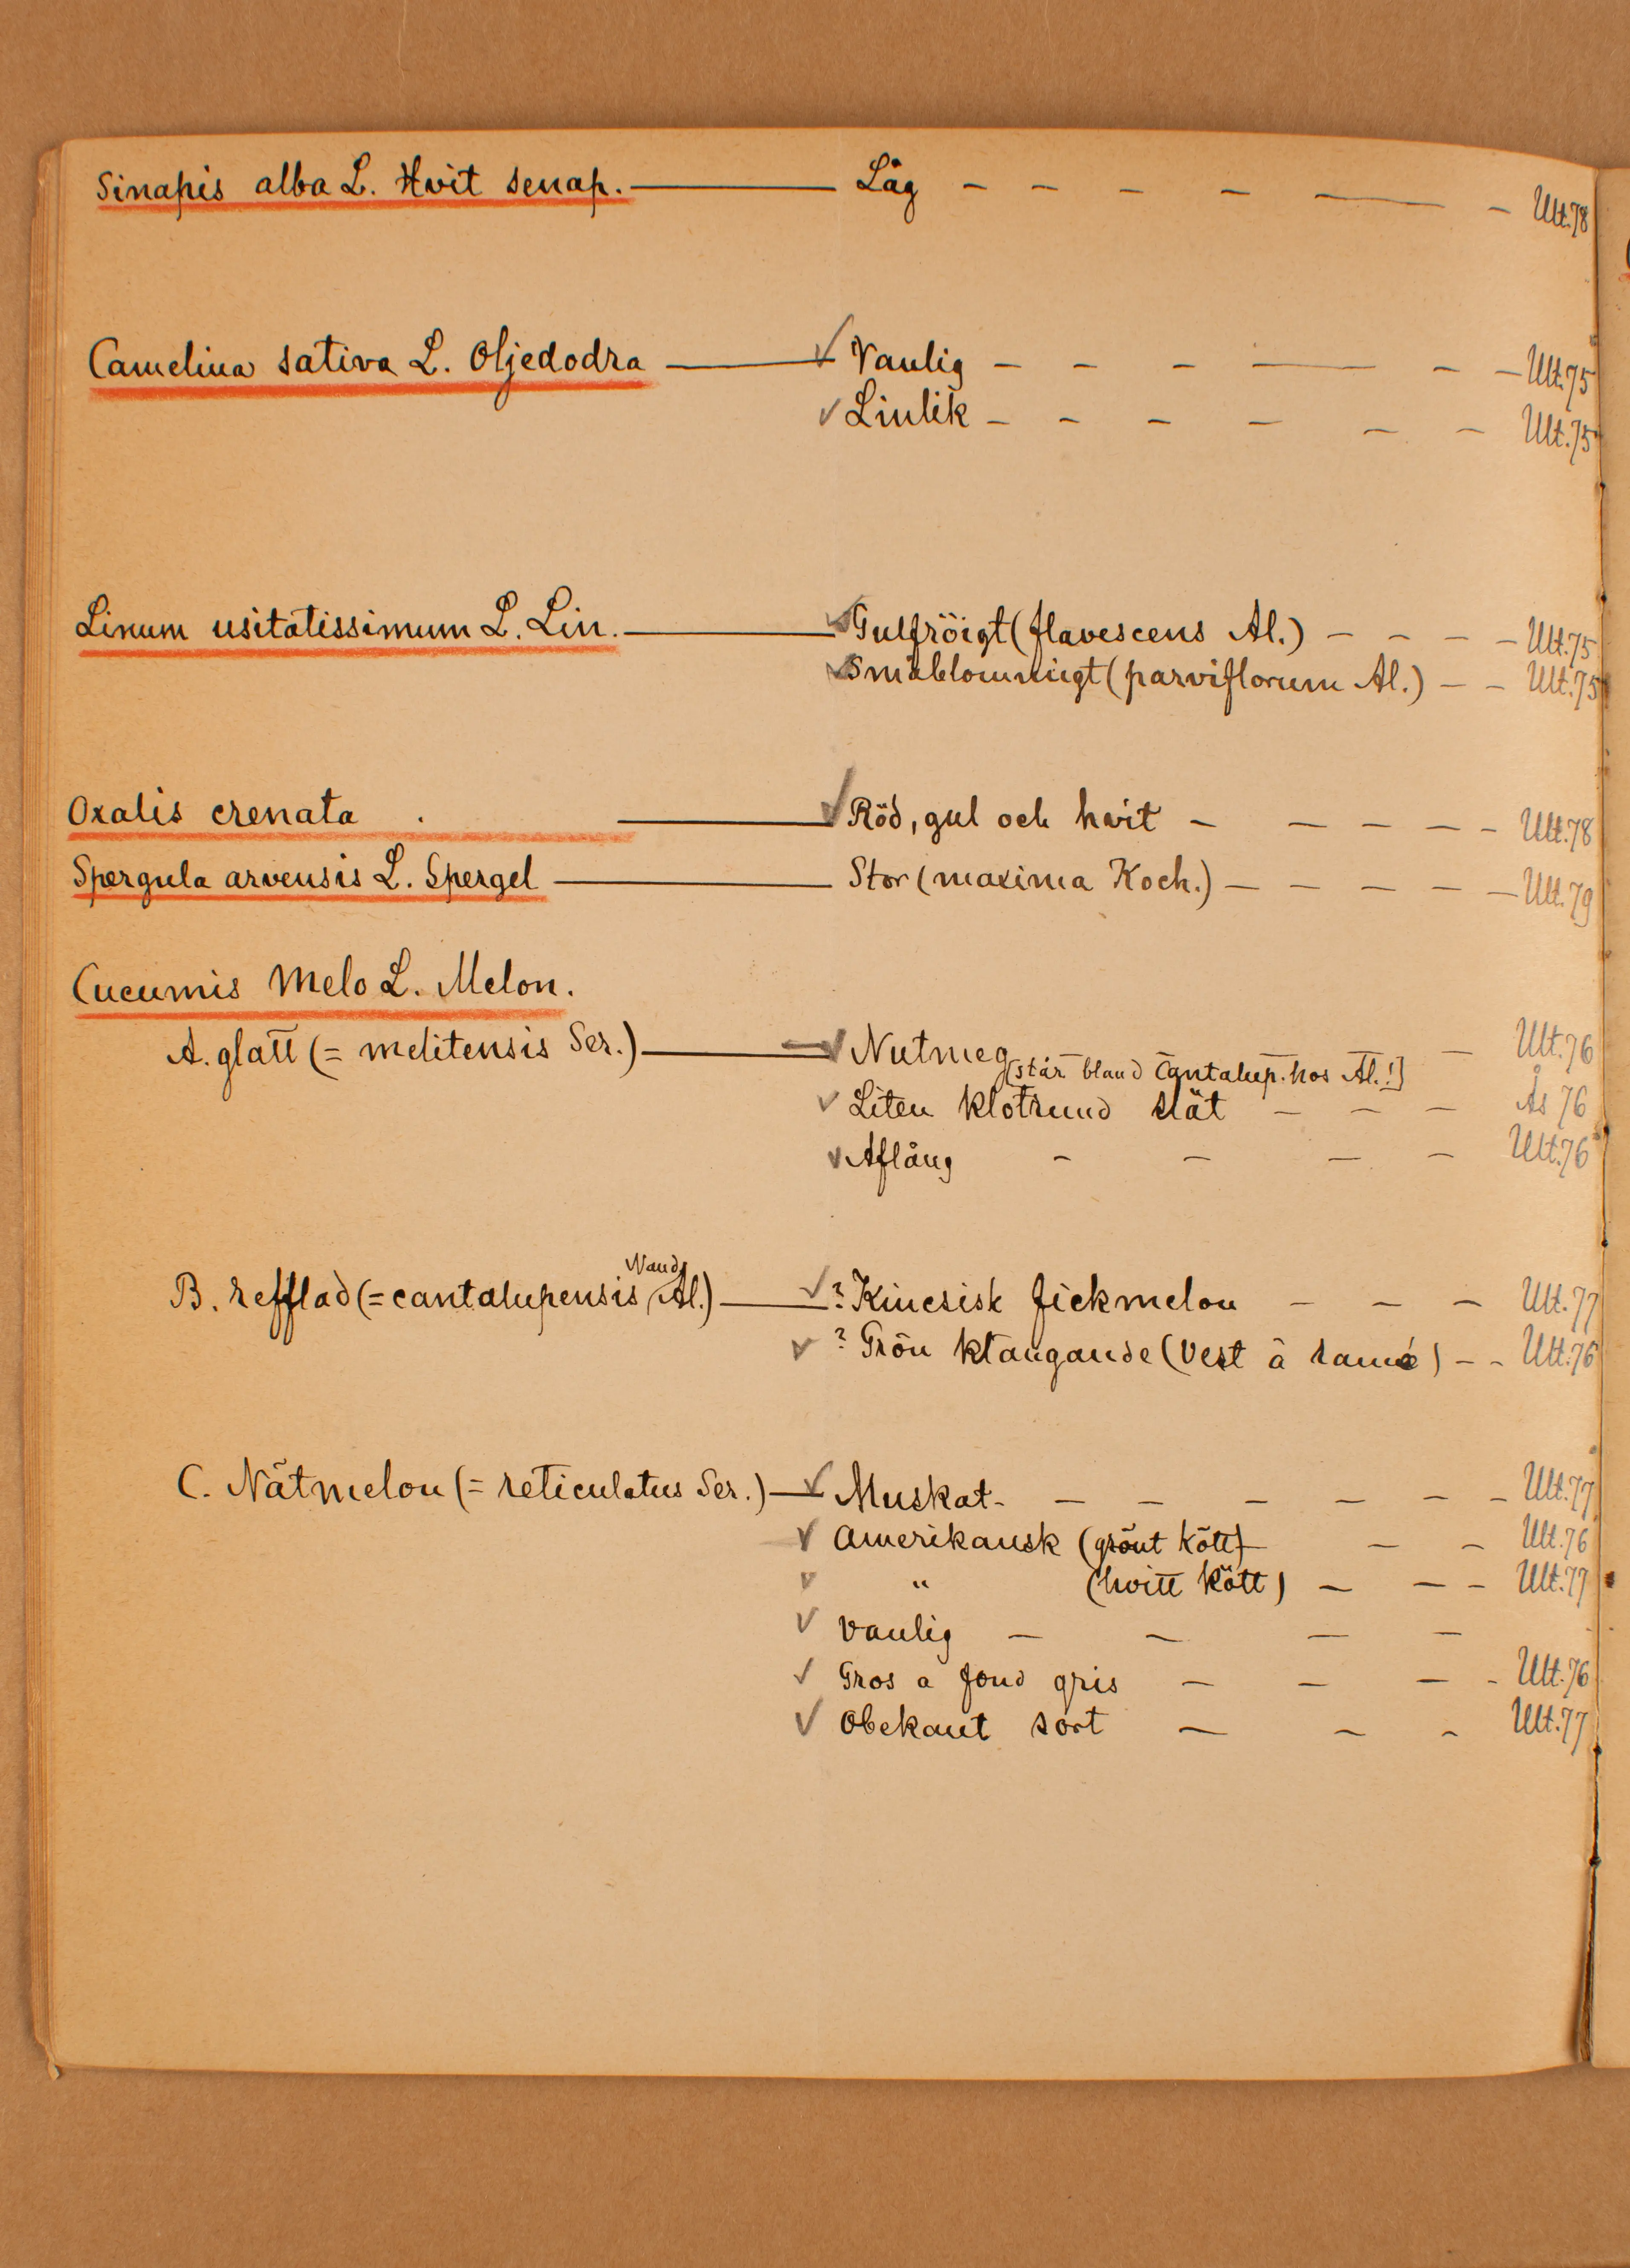 Sinapis alba L. Hvit senap. — Låg - - - - — - Ult. 78
Camelina sativa L. Oljedodra — ✓ Vanlig - - - — - - Ult. 75
✓ Linlik - - - - - - Ult. 75
Linum usitatissimum L. Lin. — ✓ Gulfröigt (flavescens Al.) - - - - Ult. 75
✓ Småblommigt (parviflorum Al.) - - Ult. 75
Oxalis crenata . — ✓ Röd, gul och hvit - - - - - Ult. 78
Spergula arvensis L. Spergel — Stor (maxima Koch.) - - - - - Ult. 79
Cucumis Melo L. Melon.
A. glatt (= melitensis Ser.) — ✓ Nutmeg - Ult. 76
[står bland Cantalup. hos Al.!]
✓ Liten klotrund slät - - - Ås 76
✓ Aflång - - - - Ult. 76
Naud.
B. refflad (= cantalupensis Al.) — ✓ ? Kinesisk fickmelon - - - Ult. 77
✓ ? Grön klängande (Vert à ramé) - - Ult. 76
C. Nätmelon (= reticulatus Ser.) — ✓ Muskat - - - - - - - Ult. 77
✓ Amerikansk (grönt kött) - - Ult. 76
✓ " (hvitt kött) - - - Ult. 77
✓ Vanlig - - - -
✓ Gros a fond gris - - - - Ult. 76
✓ Obekant sort - - - Ult. 77